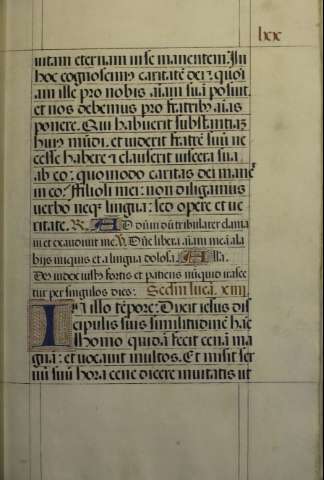 hoc
uitam eternam in se manentem. In
hoc cognoscim9 caritatē dei: quoni
am ille pro nobis aīam suā posuit.
et nos debemus pro fratrib9 aīas
ponere. Qui habuerit substantiaz
hui9 mūdi. et uiderit fratrē suū ne
cesse habere &amp; clauserit uiscera sua
ab eo: quomodo caritas dei manet
in eo? Filioli mei: non diligamus
uerbo neq3 lingua: sed opere et ue
ritate. R. AD dūm dū tribularer clama
ui et exaudiuit me. V. Dn̄e libera aīam meā a la
bijs iniquis et a lingua dolosa. Alla.
Deus iudex iustus fortis et patiens nūquid irasce
tur per singulos dies: Scd̄m lucā. xiiij.
In illo tēpore: Dixit iesus dis
cipulis suis similitudinē hāc
Homo quidā fecit cenā ma
gnā: et uocauit multos. Et misit ser
uū suū hora cene dicere inuitatis ut